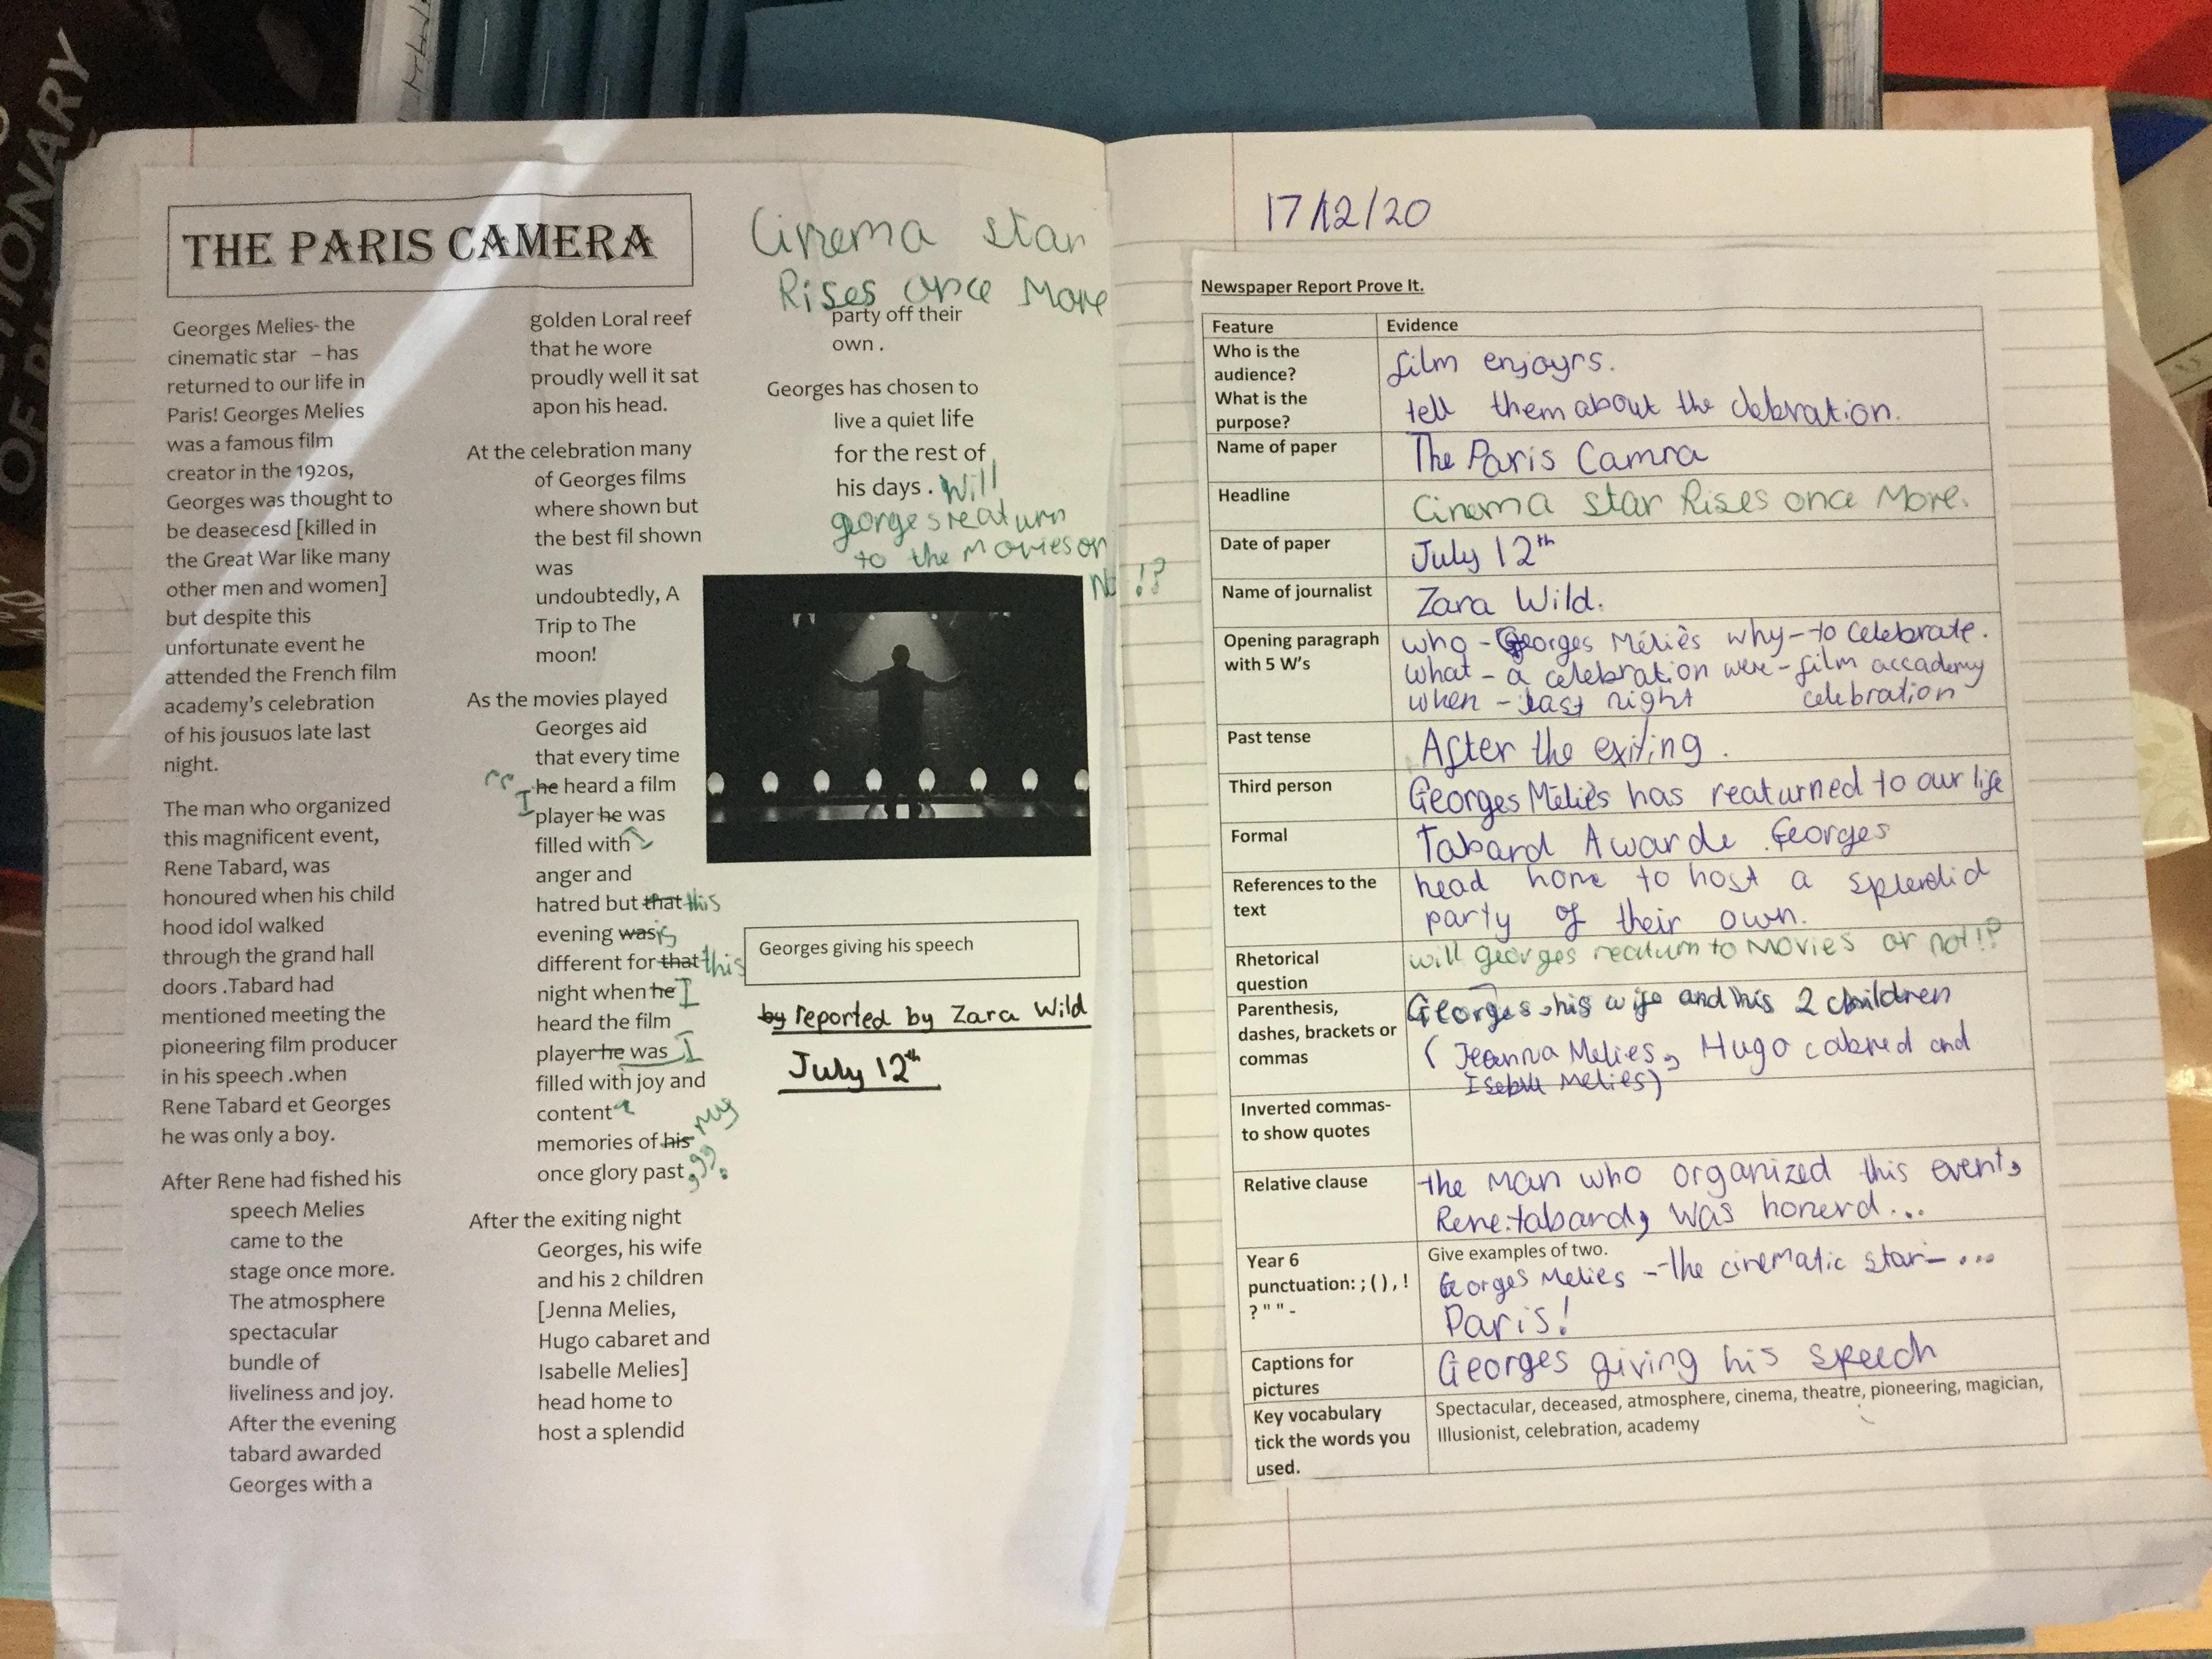 THE PARIS CAMERA
Cinema star
Rises once More
Georges Melies- the
cinematic star – has
returned to our life in
Paris! Georges Melies
was a famous film
creator in the 1920s,
Georges was thought to
be deasecesd [killed in
the Great War like many
other men and women]
but despite this
unfortunate event he
attended the French film
academy's celebration
of his jousuos late last
night.
The man who organized
this magnificent event,
Rene Tabard, was
honoured when his child
hood idol walked
through the grand hall
doors .Tabard had
mentioned meeting the
pioneering film producer
in his speech .when
Rene Tabard et Georges
he was only a boy.
After Rene had fished his
speech Melies
came to the
stage once more.
The atmosphere
spectacular
bundle of
liveliness and joy.
After the evening
tabard awarded
Georges with a
golden Loral reef
that he wore
proudly well it sat
apon his head.
At the celebration many
of Georges films
where shown but
the best fil shown
was
undoubtedly, A
Trip to The
moon!
As the movies played
Georges aid
that every time
“ he heard a film
I player he was
filled with
anger and
hatred but that this
evening was is
different for that this
night when he I
heard the film
player he was I
filled with joy and
content
memories of his My
once glory past,”.
After the exiting night
Georges, his wife
and his 2 children
[Jenna Melies,
Hugo cabaret and
Isabelle Melies]
head home to
host a splendid
party off their
own .
Georges has chosen to
live a quiet life
for the rest of
his days . Will
georges reaturn
to the Movies or
not !?
Georges giving his speech
by reported by Zara Wild
July 12th
17/12/20
Newspaper Report Prove It.
Feature Evidence
Who is the
audience? film enjoyrs.
What is the
purpose? tell them about the clebration.
Name of paper The Paris Camra
Headline Cinema star Rises once More.
Date of paper July 12th
Name of journalist Zara Wild.
Opening paragraph
with 5 W's
who - Georges Méliès why - to celebrate.
what - a celebration were - film accademy
when - last night celebration
Past tense After the exiting .
Third person Georges Méliès has reaturned to our life
Formal Tabard Awarde Georges
References to the
text
head home to host a splendid
party of their own.
Rhetorical
question
will georges reaturn to Movies or not!?
Parenthesis,
dashes, brackets or
commas
Georges, his wife and his 2 children
( Jeanna Melies, Hugo cabred and
Isebble Melies)
Inverted commas-
to show quotes
Relative clause
the man who organized this event,
Rene.tabard, was honerd...
Year 6
punctuation: ; ( ) , !
? " " -
Give examples of two.
Georges Melies - the cinematic star - ...
Paris!
Captions for
pictures
Georges giving his speech
Key vocabulary
tick the words you
used.
Spectacular, deceased, atmosphere, cinema, theatre, pioneering, magician,
Illusionist, celebration, academy